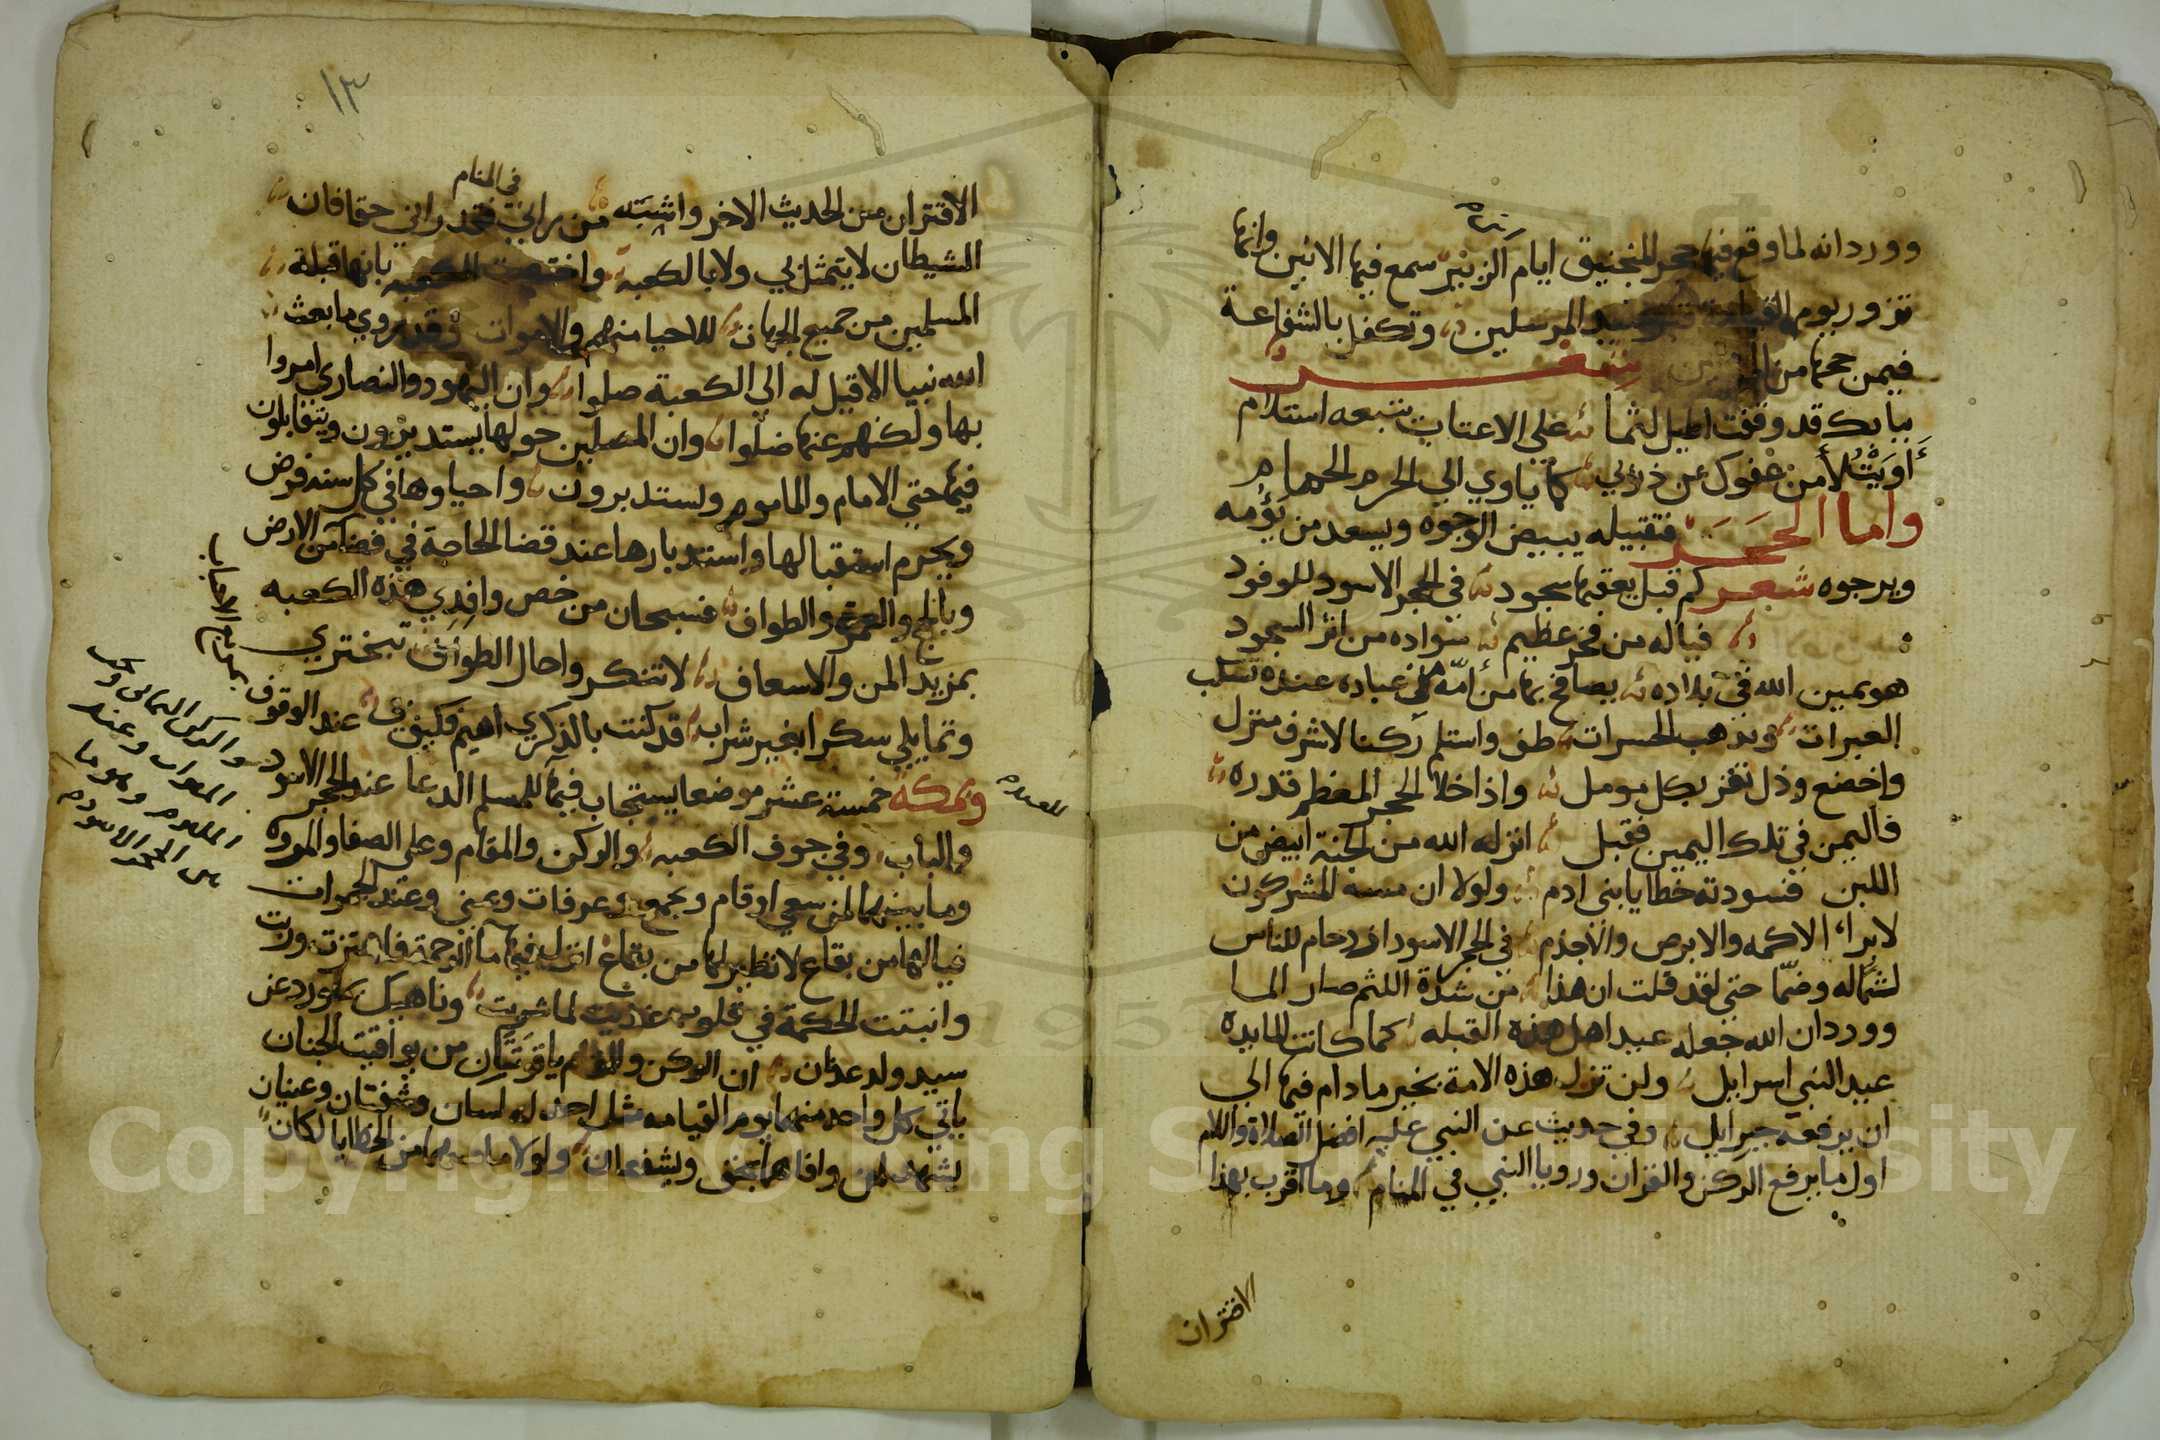 وورد انه لما وقع فيها حجر المنجنيق ايام الزبير سمع فيها الانين وانها
تزور يوم القيامة قبر سيد المرسلين وتكفل بالشفاعة
فيمن حجها من شعر
ببابك قد وقفت اطيل لثما على الاعتاب يتبعه استلام
أويت لأمن عفوك عن ذنوبي كما ياوي الي الحرم الحمام
واما الحجر فتقبيله يبيض الوجوه ويسعد من يؤمه
ويرجوه شعر كم قبل يعقبها سجود في الحجر الاسود للوفود
فياله من فخر عظيم سواده من اثر السجود
هو يمين الله في بلاده يصافح بها من أمّه من عباده عنده تسكب
العبرات وتذهب الحسرات طف واستلم ركنا لاشرف منزل
واخضع وذل تفز بكل مومل واذا خلا الحجر المعظم قدره
فاليمن في تلك اليمين فقبل انزله الله من الجنة ابيض من
اللبن فسودته خطايا بني ادم ولولا ان مسه المشركون
لابرا الاكمه والابرص والاجذم في الحجر الاسود ازدحام للناس
لثماله وضمّا حتى لقد قلت ان هذا من شدة اللثم صار الما
وورد ان الله جعله عيد اهل هذه القبله كما كانت المايده
عيد البني اسرايل ولن تزل هذه الامة بخير ما دام فيها الي
ان يرفعه جبرايل وفي حديث عن النبي عليه افضل الصلاة والسلام
اول ما يرفع الركن والقران ورويا النبي في المنام وما اقرب بهذا
الاقتران
١٣
في المنام
الاقتران من الحديث الاخر واشبَته من راني فقد راني حقا فان
الشيطان لا يتمثل بي ولا بالكعبه واختصت الكعبه بانها قبلة
المسلمين من جميع الجهات للاحيا منهم والاموات وقد روي ما بعث
الله نبيا الا قيل له الي الكعبة صلوا وان اليهود والنصاري امروا
بها ولكنهم عنها ضلوا وان المصلين حولها يستديرون ويتقابلون
فيها حتي الامام والماموم ويستدبرون واحياوها في كل سنه فرض
ويحرم استقبالها واستدبارها عند قضا الحاجة في فضا من الارض
وبالحج والعمرة والطواف فسبحان من خص وافدي هذه الكعبه
بمزيد المن والاسعاف لا تنكروا حال الطوائف تبختري
وتمايلي سكرا بغير شراب قد كنت بالذكري اهيم فكيف عند الوقوف
بمربع الاحباب
وبمكه خمسة عشر موضعا يستجاب فيها للمسلم الدعا عند الحجر الاسود
والباب وفي جوف الكعبه والركن والمقام وعلى الصفا والمروه
وما بينهما لمن سعي او قام وبجمع وعرفات وبمني وعند الجمرات
فيالها من بقاع لا نظير لها من بقاع انزل فيها ما الرحمة فاهتزت وربت
وانبتت الحكمة في قلوب عذبت لما شربت وناهيك بما ورد عن
سيد ولد عدنان ان الركن والمقام ياقوتتان من يواقيت الجنان
ياتي كل واحد منهما يوم القيامه مثل احد له لسان وشفتان وعينان
يشهد لمن وافاهما بحق ويشفعان ولولا ما مسهما من الخطايا لكان
والركن اليماني
وعند
الملتزم وهو ما
بين الحجر الاسود
Copyright © King Saud University
1957